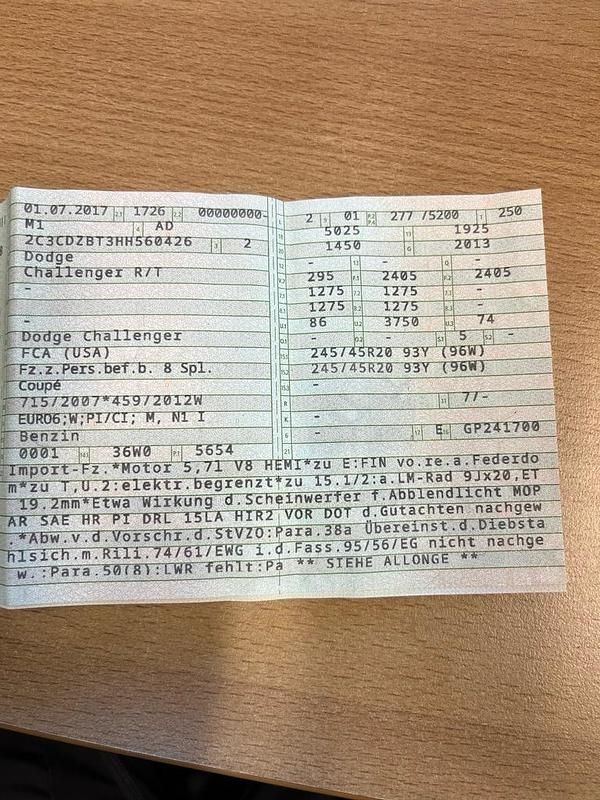 01.07.2017 1726 00000000-
M1 AD
2C3CDZBT3HH560426 2
Dodge
Challenger R/T
-
-
Dodge Challenger
FCA (USA)
Fz.z.Pers.bef.b. 8 Spl.
Coupé
715/2007*459/2012W
EURO6;W;PI/CI; M, N1 I
Benzin
0001 36W0 5654
2 01 277 /5200 250
5025 1925
1450 2013
- - -
295 2405 2405
1275 1275 -
1275 1275 -
86 3750 74
- - 5 -
245/45R20 93Y (96W)
245/45R20 93Y (96W)
-
- 7/-
-
E GP241700
Import-Fz.*Motor 5,7l V8 HEMI*zu E:FIN vo.re.a.Federdo
m*zu T,U.2:elektr.begrenzt*zu 15.1/2:a.LM-Rad 9Jx20,ET
19.2mm*Etwa Wirkung d.Scheinwerfer f.Abblendlicht MOP
AR SAE HR PI DRL 15LA HIR2 VOR DOT d.Gutachten nachgew
.*Abw.v.d.Vorschr.d.StVZO:Para.38a Übereinst.d.Diebsta
hlsich.m.Rili.74/61/EWG i.d.Fass.95/56/EG nicht nachge
w.:Para.50(8):LWR fehlt:Pa ** SIEHE ALLONGE **